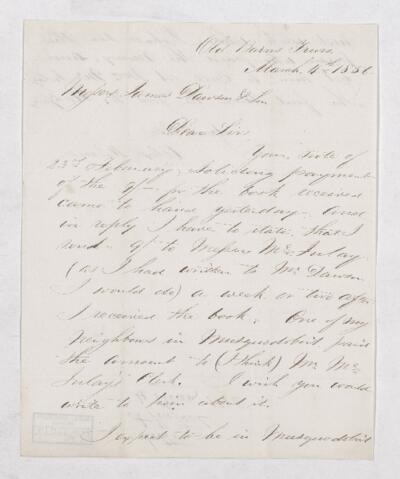 Old Barns Truro
March 4th 1856
Messrs James Dawson & Son
Dear Sirs
Your note of
23rd February, soliciting payment
of the 9/- for the book received
came to hand yesterday, and
in reply I have to state that I
send 9/- to Messrs McInlay
(as I had written to Mr. Dawson
I would do) a week or two after
I received the book. One of my
neighbours in Musquodoboit paid
the amount to (I think) Mr. Mc
Inlay's Clerk. I wish you would
write to him about it.
I expect to be in Musquodoboit